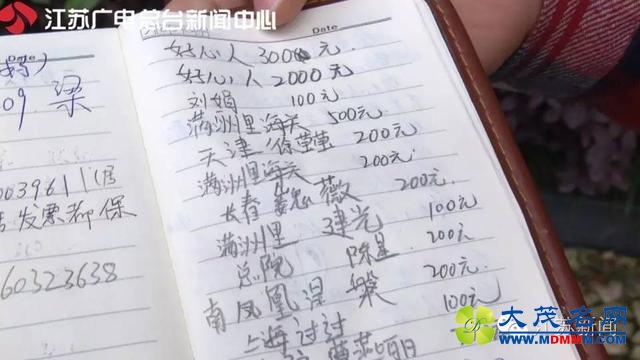 江苏广电总台新闻中心
Date
好心人 3000元
好心人 2000元
刘娟 100元
满洲里海关 500元
天津 徐莹莹 200元
满洲里海关 200元
长春 魏薇 200元
满洲里 建光 100元
总院 陈星 200元
南凤凰涅槃 200元
上海 讨讨 100元
09 梁
0039611(居
发票都保
60323638
江苏新闻
大茂名网
WWW.MDMMM.COM